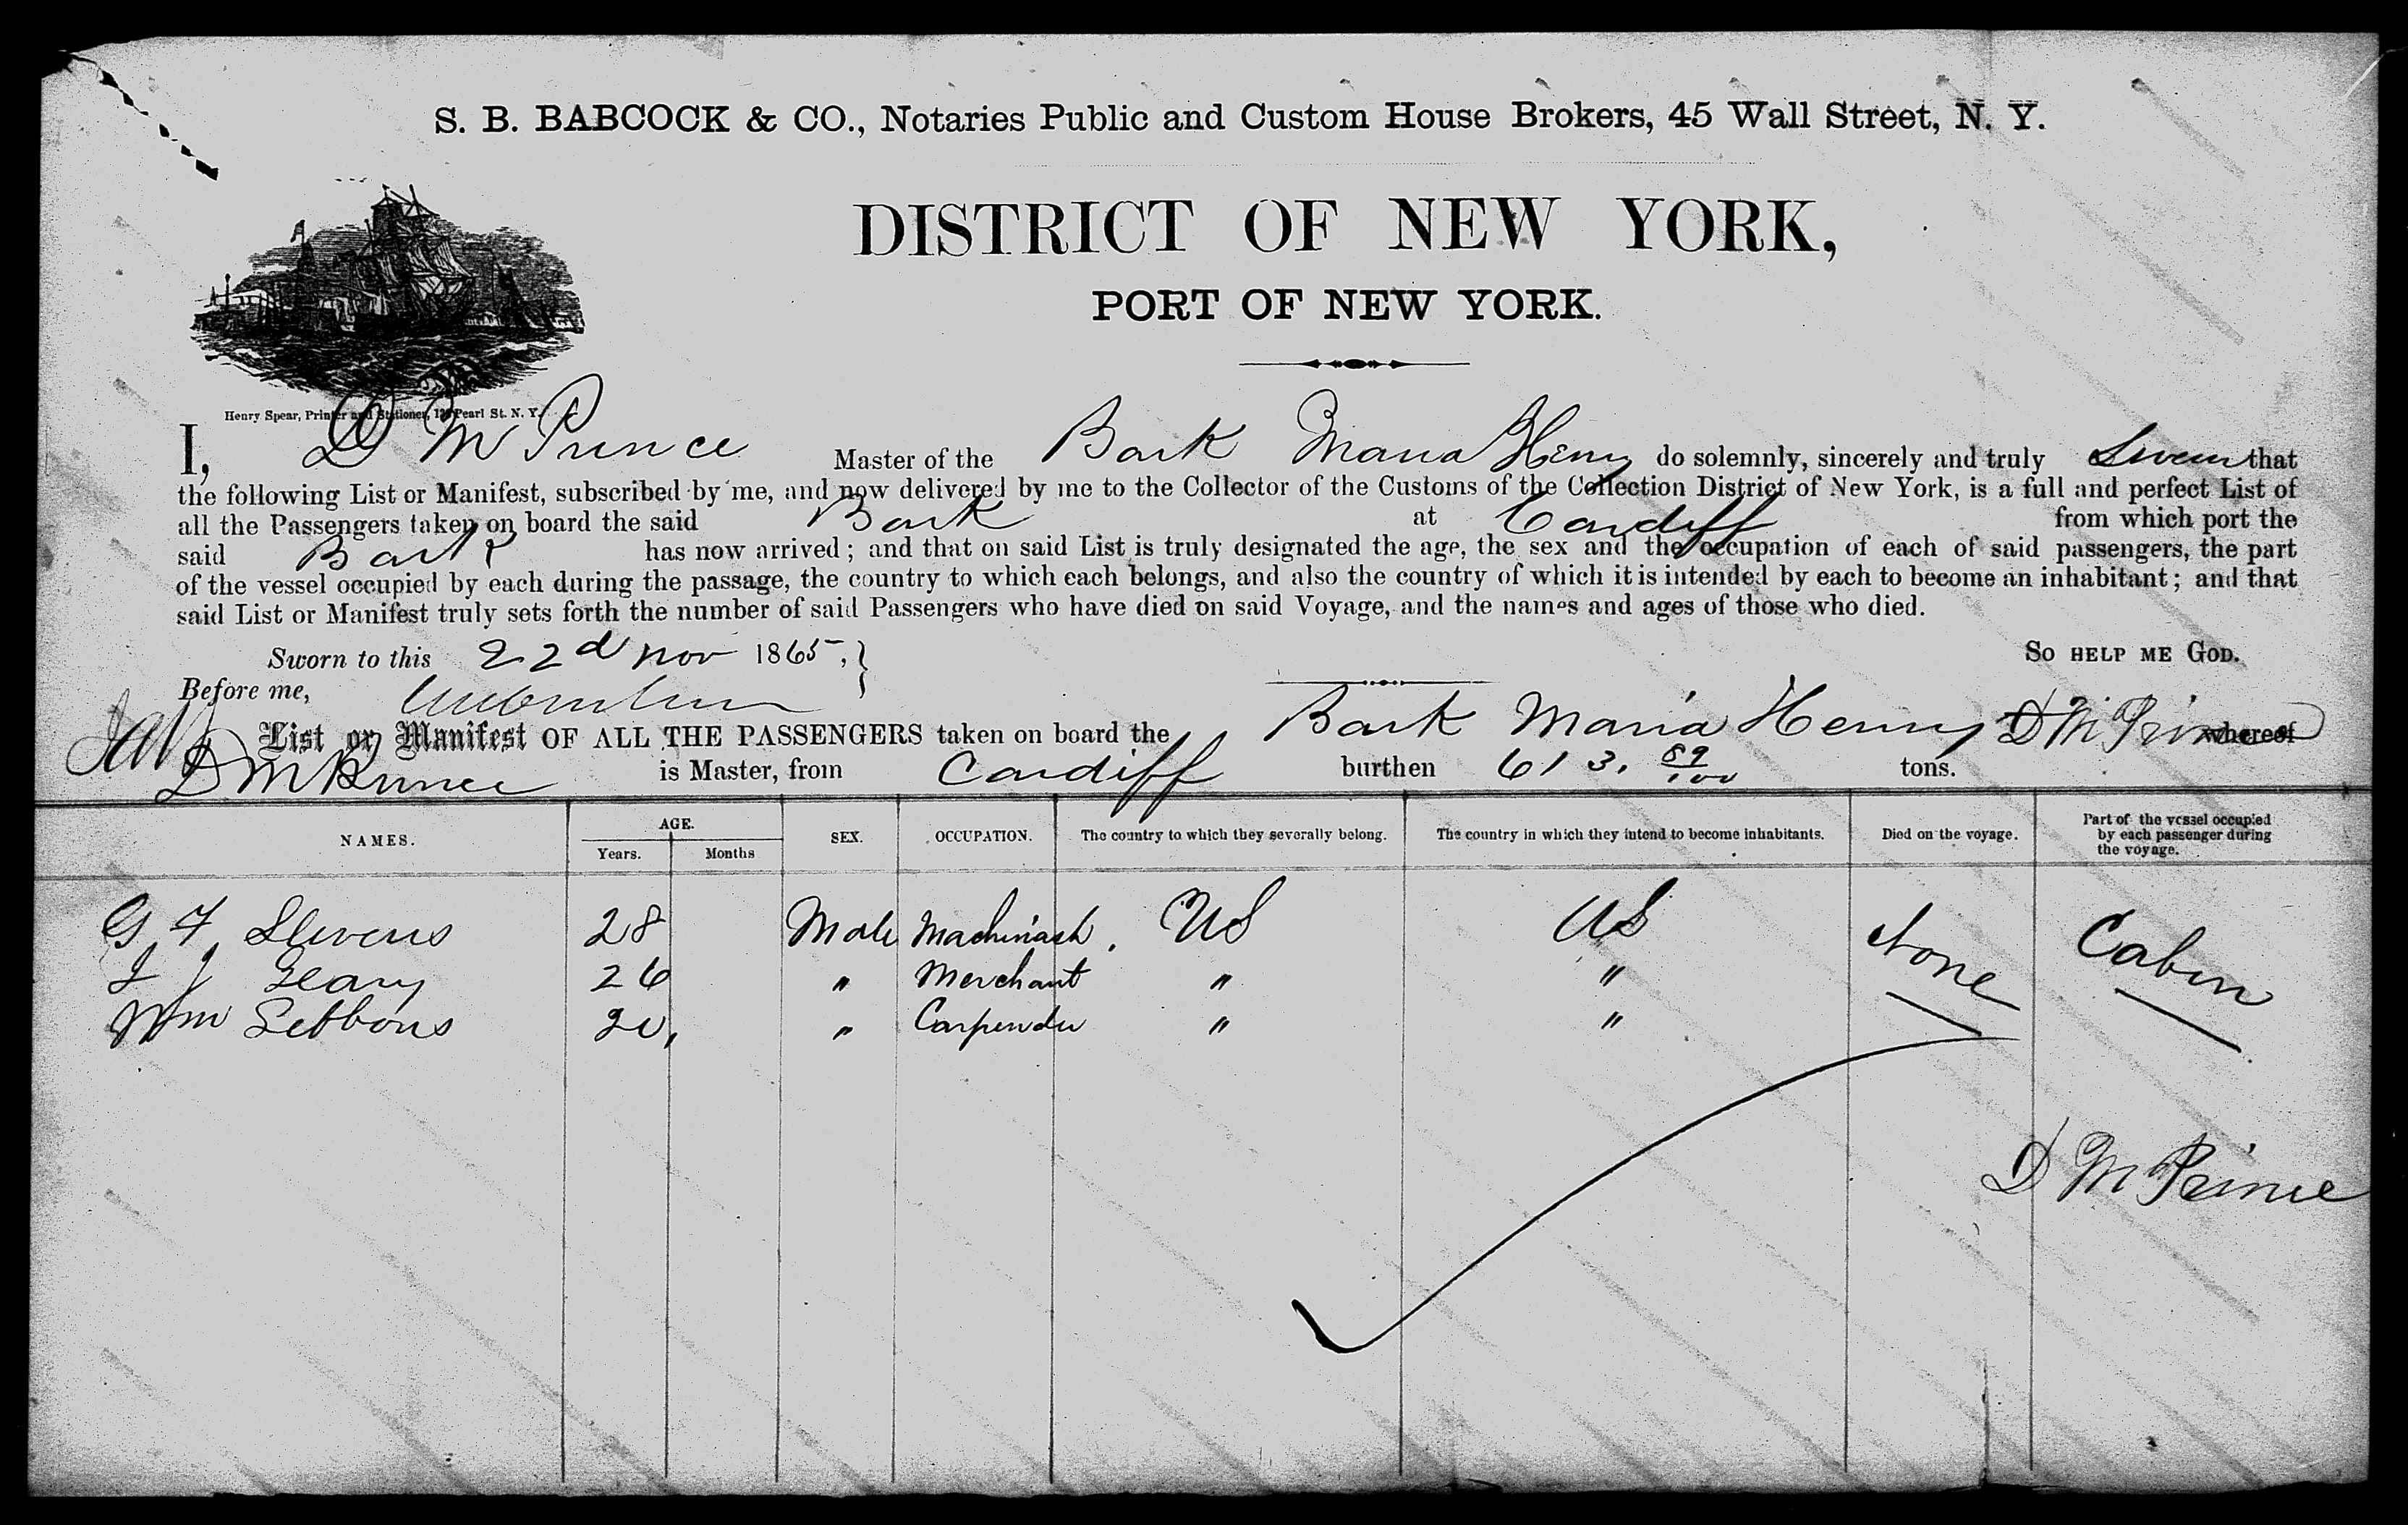 S. B. BABCOCK & CO., Notaries Public and Custom House Brokers, 45 Wall Street, N. Y.
DISTRICT OF NEW YORK,
PORT OF NEW YORK.
Henry Spear, Printer and Stationer, Pearl St. N. Y.
I, D M Prince Master of the Bark Maria Henry do solemnly, sincerely and truly Swear that
the following List or Manifest, subscribed by me, and now delivered by me to the Collector of the Customs of the Collection District of New York, is a full and perfect List of
all the Passengers taken on board the said Bark at Cardiff from which port the
said Bark has now arrived; and that on said List is truly designated the age, the sex and the occupation of each of said passengers, the part
of the vessel occupied by each during the passage, the country to which each belongs, and also the country of which it is intended by each to become an inhabitant; and that
said List or Manifest truly sets forth the number of said Passengers who have died on said Voyage, and the names and ages of those who died.
Sworn to this 22d Nov 1865, So HELP ME GOD.
Before me,
List or Manifest OF ALL THE PASSENGERS taken on board the Bark Maria Henry D M Prince whereof
D M Prince is Master, from Cardiff burthen 613. 89/100 tons.
NAMES. AGE. Years. Months SEX. OCCUPATION. The country to which they severally belong. The country in which they intend to become inhabitants. Died on the voyage. Part of the vessel occupied by each passenger during the voyage.
G F Stevens 28 Male Machinash. US US None Cabin
J J Geary 26 " Merchant " "
Wm Gebbons 20, " Carpender " "
D M Prince